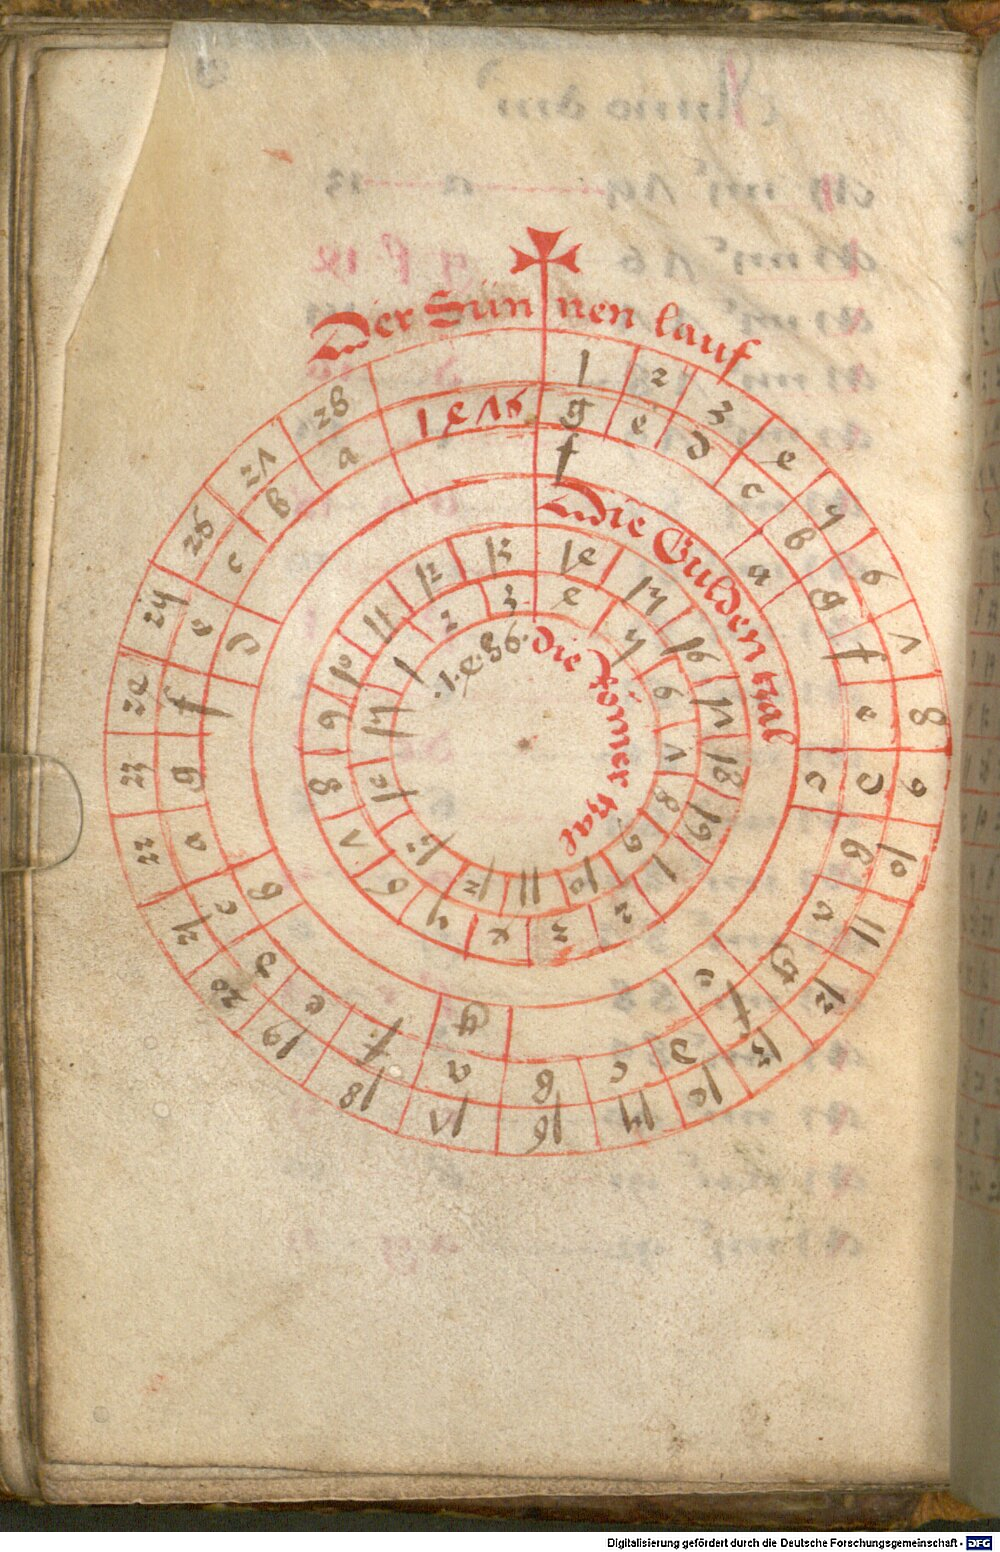 Der Sünnen lauf
1 2 3 4 5 6 7 8 9 10 11 12 13 14 15 16 17 18 19 20 21 22 23 24 25 26 27 28
1476
g e d c b g f e d b a g f d c b a f e d c a g f e c b a
f a c e g b d
Die Gulden tzal
14 15 16 17 18 19 1 2 3 4 5 6 7 8 9 10 11 12 13
4 5 6 7 8 9 10 11 12 13 14 15 1 2 3
.1.4.36.
die Römer tzal
Digitalisierung gefördert durch die Deutsche Forschungsgemeinschaft - DFG